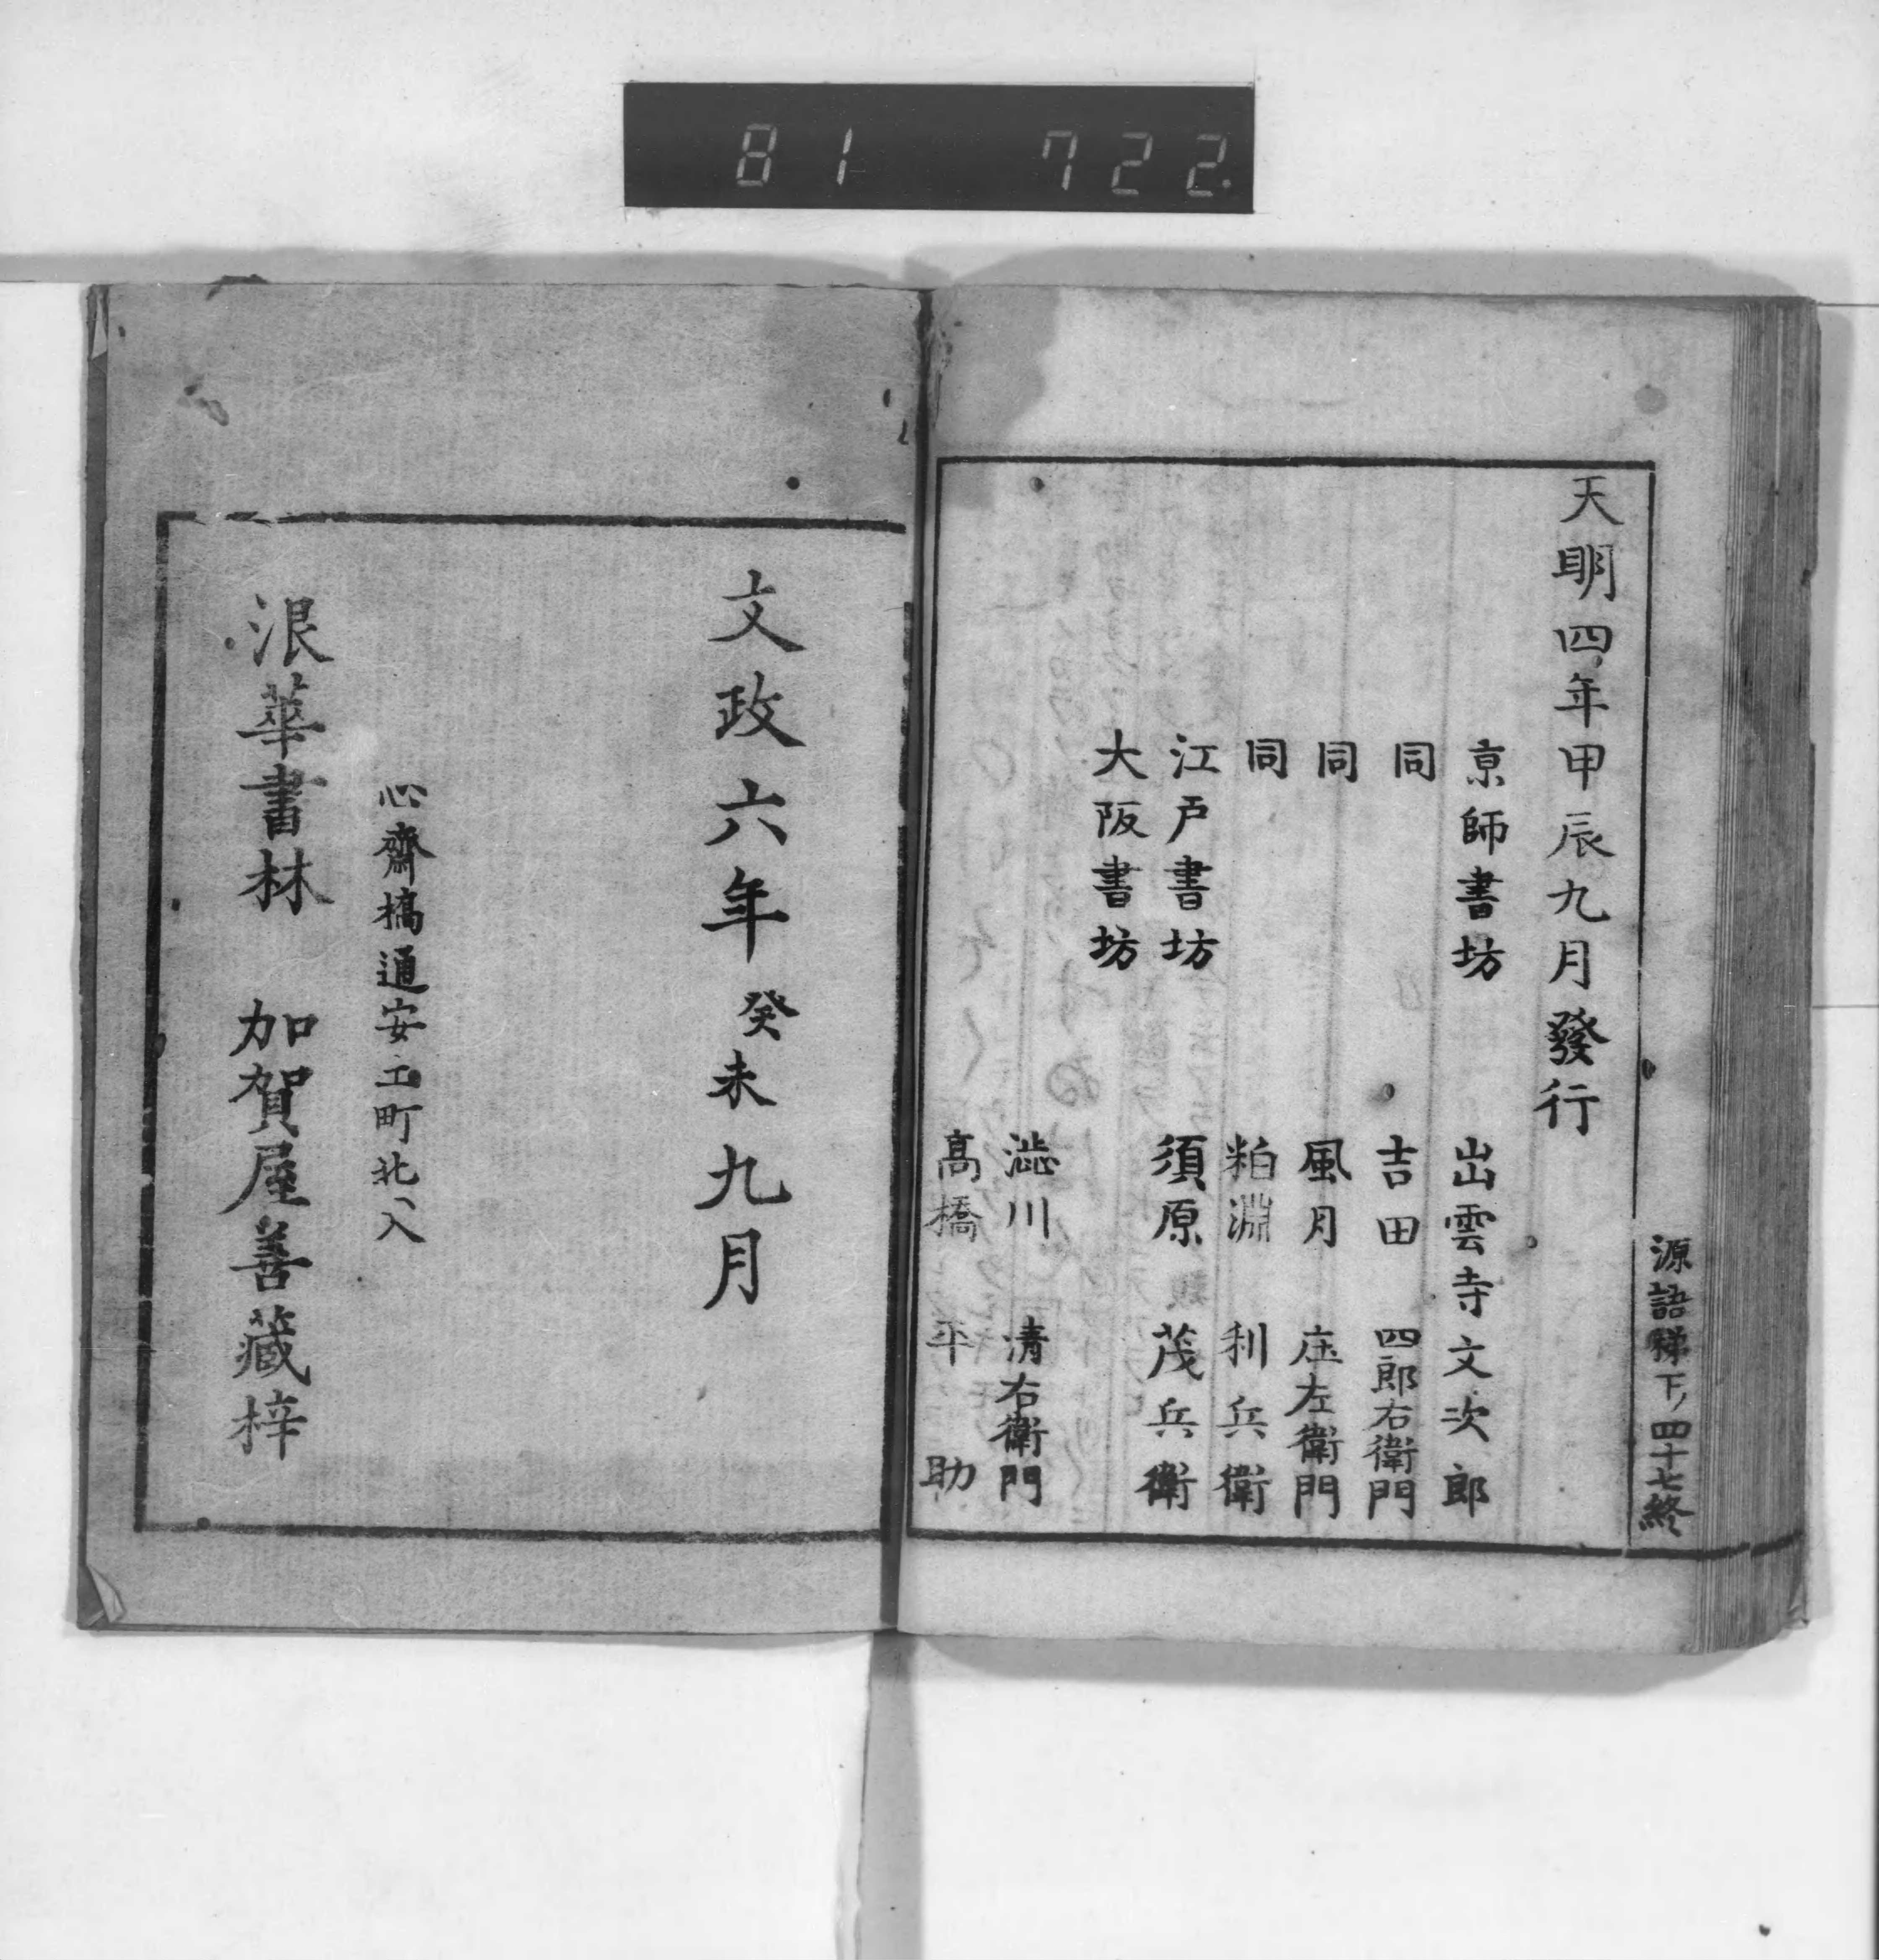 81 722.
源語梯下 四十七終
天明四年甲辰九月發行
京師書坊 出雲寺文次郎
同 吉田四郎右衛門
同 風月庄左衛門
同 粕淵利兵衛
江戸書坊 須原茂兵衛
大阪書坊
澁川清右衛門
髙橋平助
文政六年癸未九月
心齋橋通安土町北ヘ入
浪華書林 加賀屋善藏梓